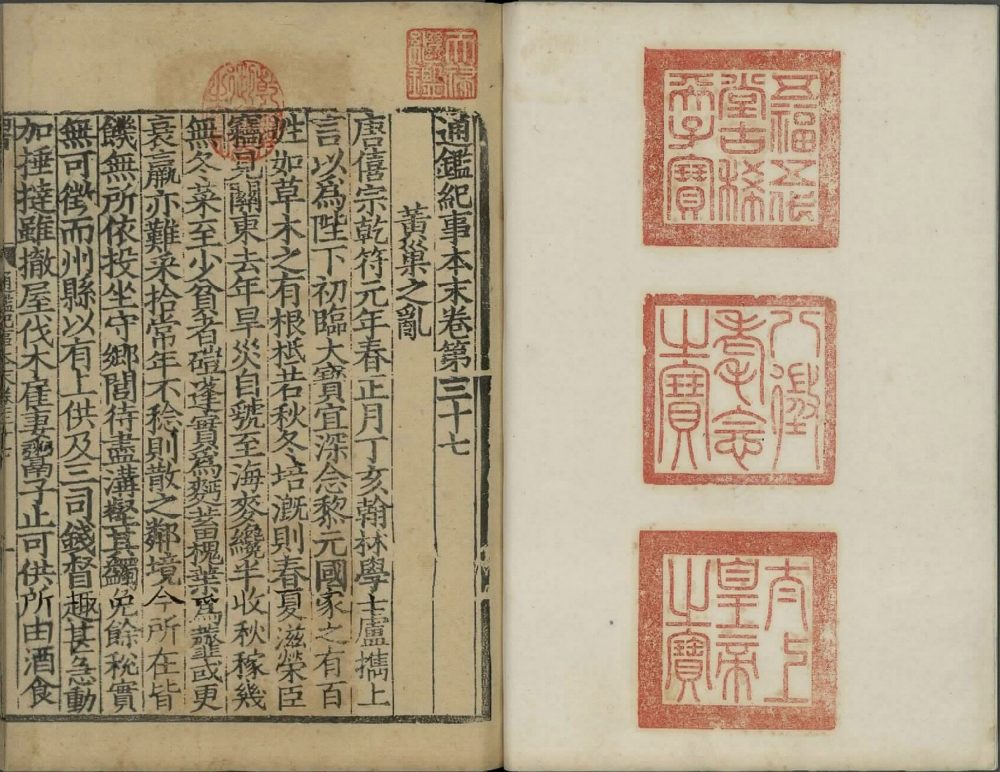 五福五代
堂古稀
天子寶
八徵
耄念
之寶
太上
皇帝
之寶
天祿
繼鑑
乾隆
御覽
之寶
通鑑紀事本末卷第三十七
黃巢之亂
唐僖宗乾符元年春正月丁亥翰林學士盧攜上
言以為陛下初臨大寶宜深念黎元國家之有百
姓如草木之有根柢若秋冬培溉則春夏滋榮臣
竊見關東去年旱災自虢至海麥纔半收秋稼幾
無冬菜至少貧者磑蓬實為麫蓄槐葉為虀或更
衰羸亦難采拾常年不稔則散之鄰境今所在皆
饑無所依投坐守鄉閭待盡溝壑其蠲免餘稅實
無可徵而州縣以有上供及三司錢督趣甚急動
加捶撻雖撤屋伐木雇妻鬻子止可供所由酒食